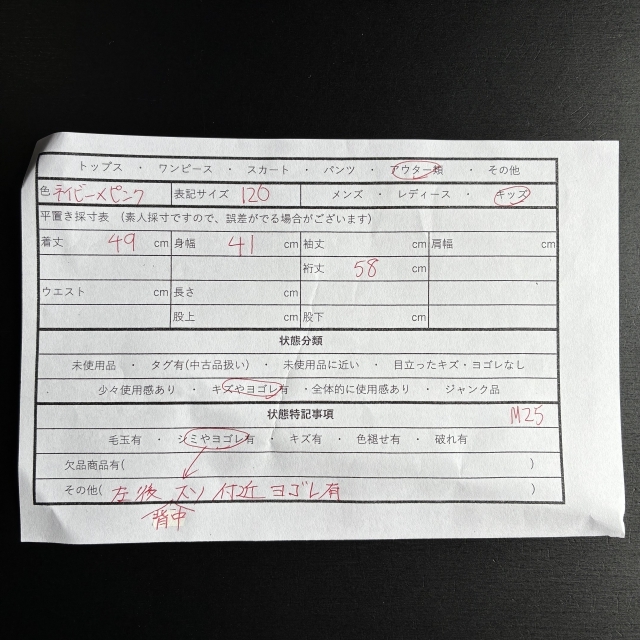 トップス ・ ワンピース ・ スカート ・ パンツ ・ アウター類 ・ その他
色 ネイビー×ピンク 表記サイズ 120 メンズ ・ レディース ・ キッズ
平置き採寸表 （素人採寸ですので、誤差がでる場合がございます）
着丈 49 cm 身幅 41 cm 袖丈 cm 肩幅 cm
裄丈 58 cm
ウエスト cm 長さ cm
股上 cm 股下 cm
状態分類
未使用品 ・ タグ有(中古品扱い) ・ 未使用品に近い ・ 目立ったキズ・ヨゴレなし
少々使用感あり ・ キズやヨゴレ有 ・全体的に使用感あり ・ ジャンク品
状態特記事項 M25
毛玉有 ・ シミやヨゴレ有 ・ キズ有 ・ 色褪せ有 ・ 破れ有
欠品商品有( )
その他( 左後 スソ 付近 ヨゴレ有 )
背中